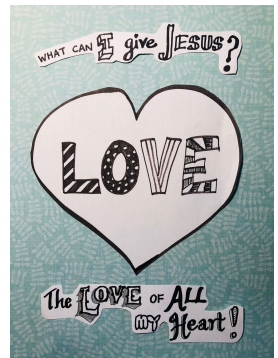 WHAT CAN I give JESUS?
LOVE
The LOVE OF ALL
my Heart!